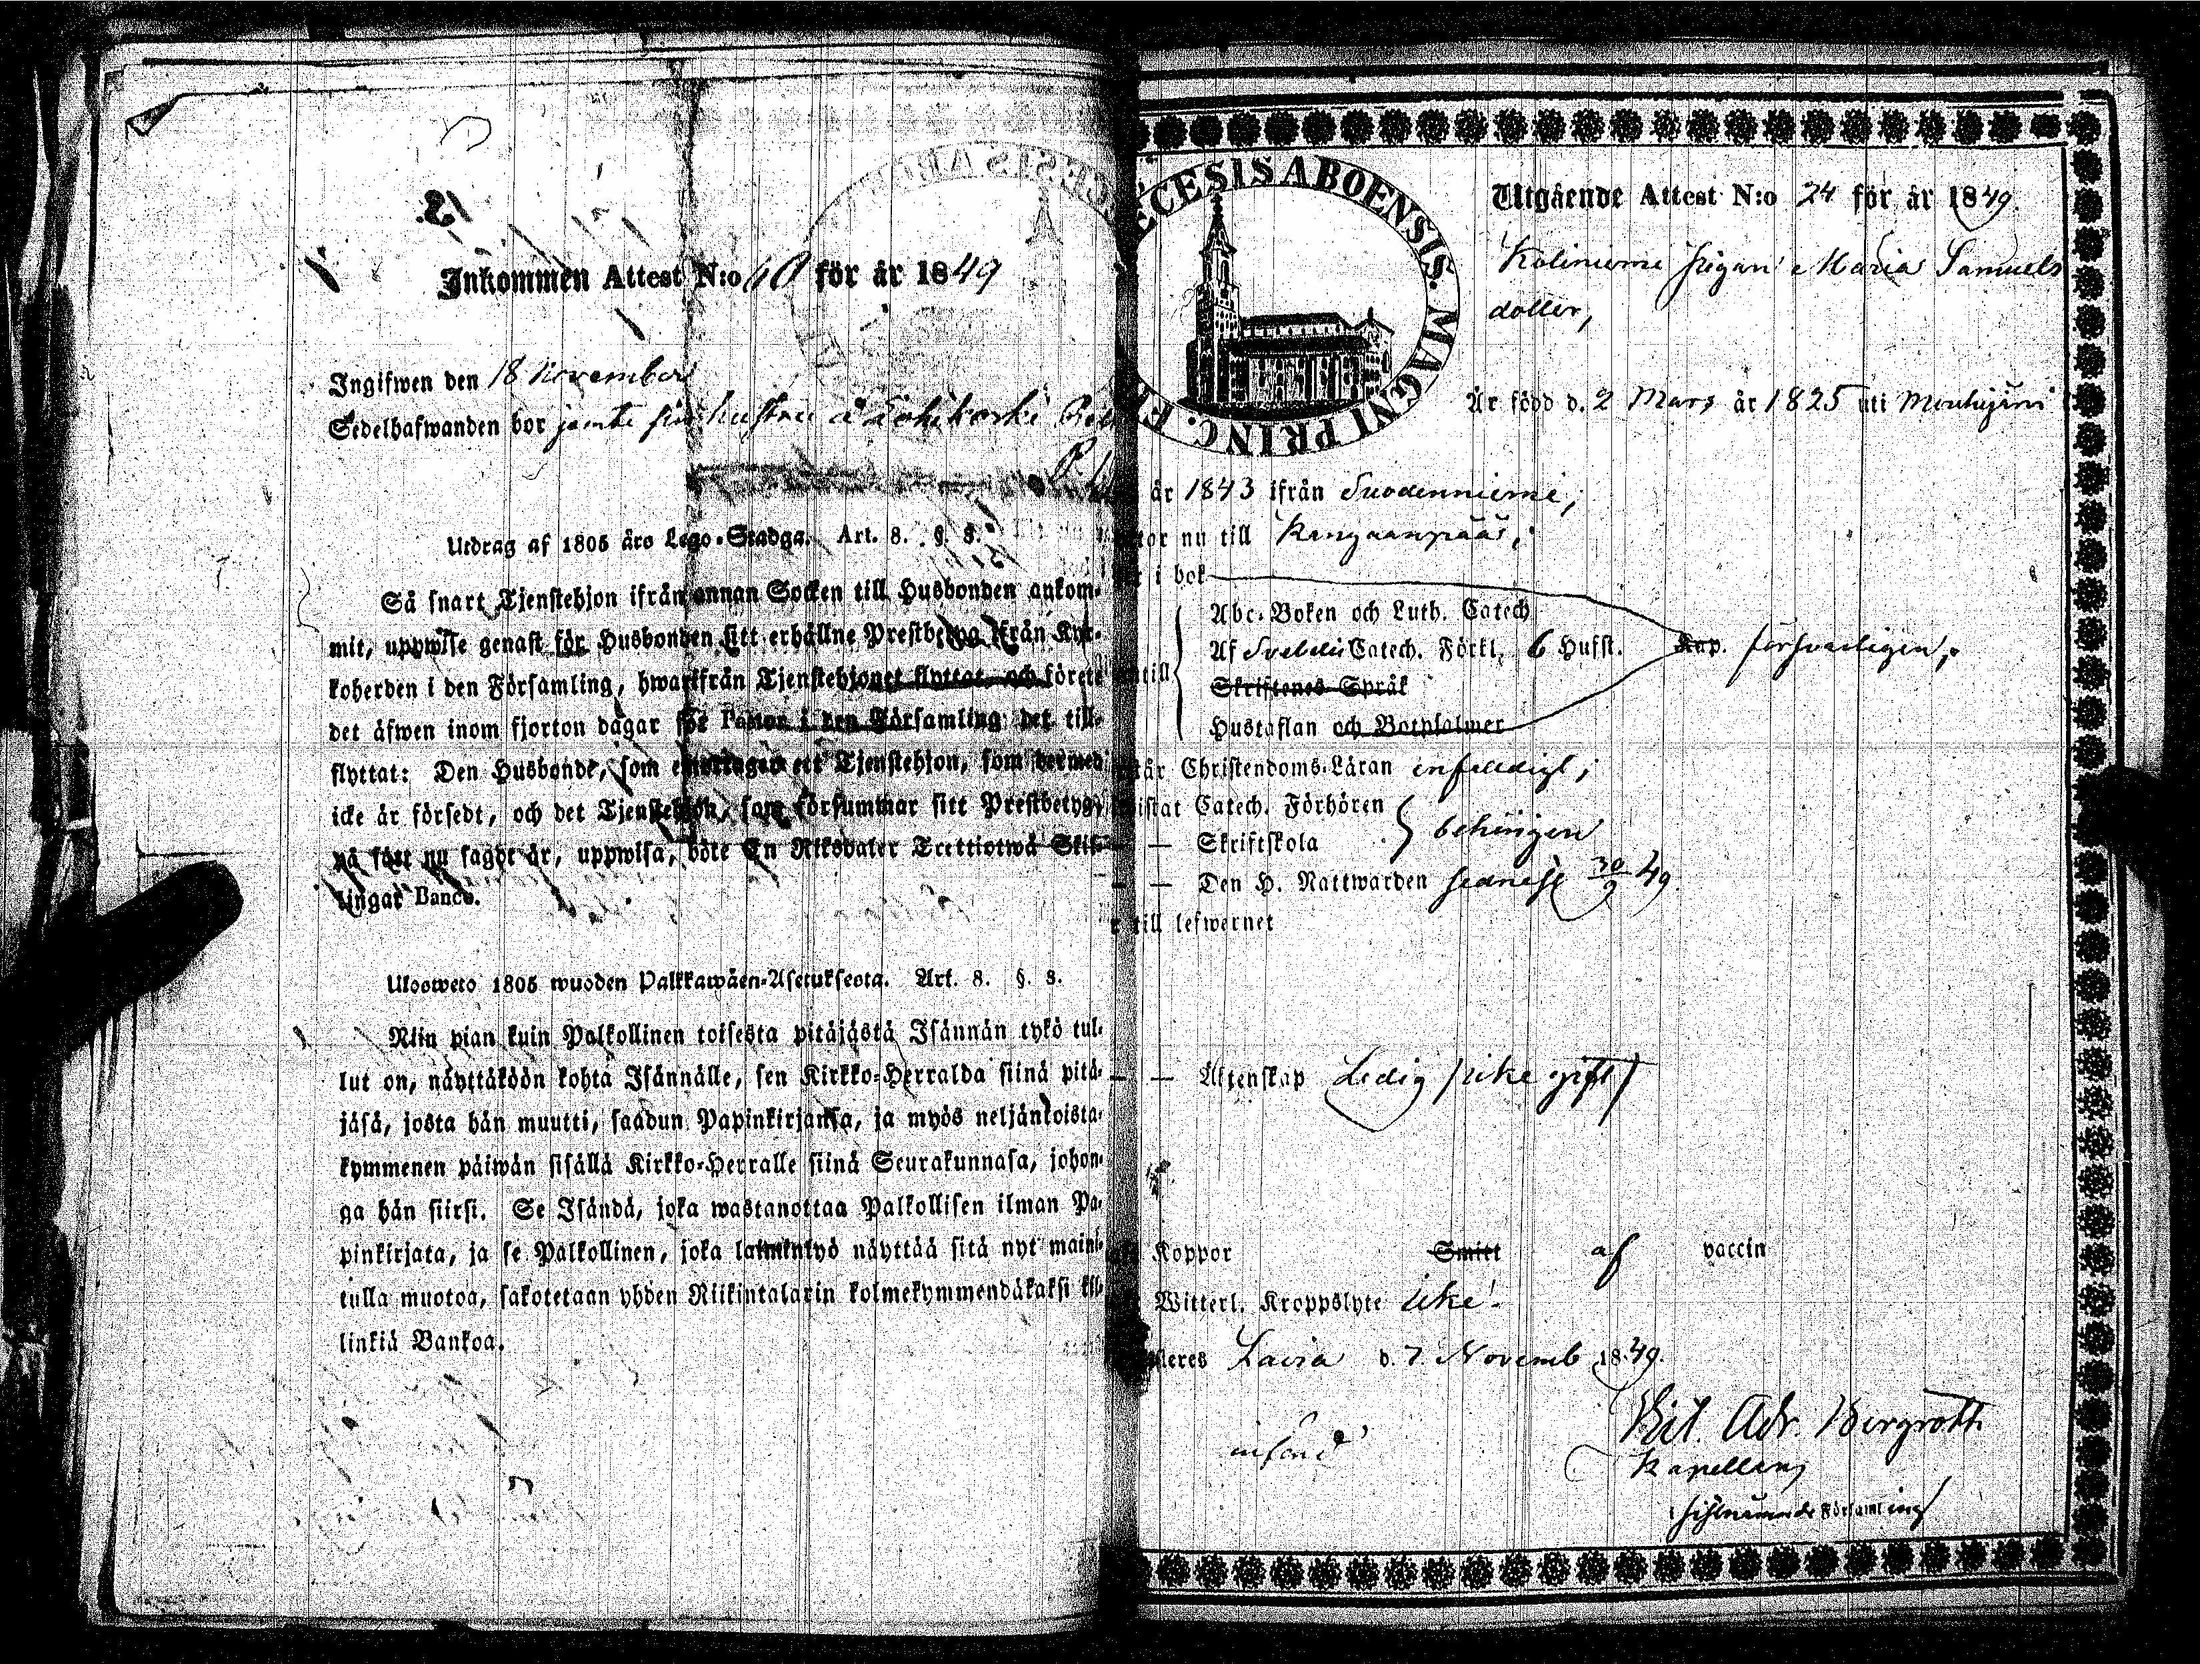 Inkommen Attest N:o 60 för år 1849
Ingifwen den 18 November
Sedelhafwanden bor jemte sin hustru å
Utdrag af 1805 års Lego-Stadga. Art. 8. §. 8.
Så snart Tjenstehjon ifrån annan Socken till Husbonden ankom-
mit, uppwise genast för Husbonden sitt erhållne Prestbetyg ifrån Kyr-
koherden i den Församling, hwarifrån Tjenstehjonet flyttat, och förete
det äfwen inom fjorton dagar för Pastor i den Församling det till-
flyttat: Den Husbonde, som emottager ett Tjenstehjon, som dermed
icke är försedt, och det Tjenstehjon, som försummar sitt Prestbetyg,
på sätt nu sagdt är, uppwisa, böte En Riksdaler Trettiotwå Skil-
lingar Banco.
Ulosweto 1805 wuoden Palkkawäen-Asetuksesta. Art. 8. §. 8.
Niin pian kuin Palkollinen toisesta pitäjästä Isännän tykö tul-
lut on, näyttäköön kohta Isännälle, sen Kirkko-Herralda siinä pitä-
jäsä, josta hän muutti, saadun Papinkirjansa, ja myös neljäntoista-
kymmenen päiwän sisällä Kirkko-Herralle siinä Seurakunnasa, johon-
ga hän siirsi. Se Isändä, joka wastanottaa Palkollisen ilman Pa-
pinkirjata, ja se Palkollinen, joka laiminlyö näyttää sitä nyt maini-
tulla muotoa, sakotetaan yhden Riikintalarin kolmekymmendäkaksi kil-
linkiä Bankoa.
ECESIS ABOENSIS. MAGNI PRINC. FI
Utgående Attest N:o 24 för år 1849.
Kolinieme Pigan Maria Samuels
dotter,
Är född d. 2 Mars år 1825 uti Mouhijärvi
år 1843 ifrån Suodenniemi,
nu till Kangaanpää,
i bok
Abc-Boken och Luth. Catech
Af Svebelii Catech. Förkl. 6 Hufst. Kap. försvarligen,
till
Skriftenes Språk
Hustaflan och Botpsalmer
Christendoms-Läran enfaldigt,
Catech. Förhören
— Skriftskola behörigen
— — Den H. Nattwarden senast 30/9 49.
till lefwernet
— — Äktenskap Ledig (icke gift)
Koppor Smitt af vaccin
Witterl. Kroppslyte icke.
Lavia d. 7 Novemb 1849.
Vit. Adr. Bergroth
Kapellan
införd
sistnämnde Församling